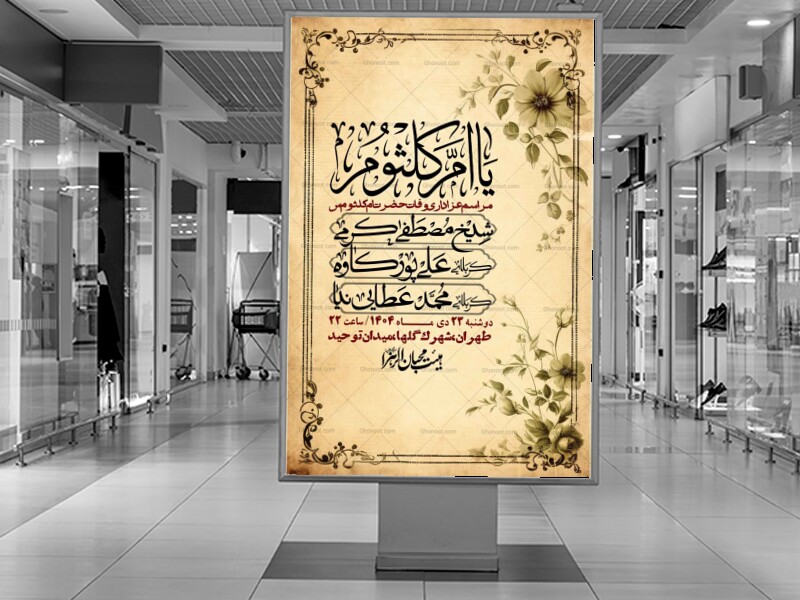 یا ام کلثوم
مراسم عزاداری وفات حضرت ام کلثوم س
شیخ مصطفی کرمی
کربلایی علی پورکاوه
کربلایی محمد عطایی نیا
دوشنبه ۲۳ دی مــاه ۱۴۰۴/ ساعت ۲۲
طهران،شهرک گلها،میدان توحید
هیئت محبان الزهرا
Ghonoot.com